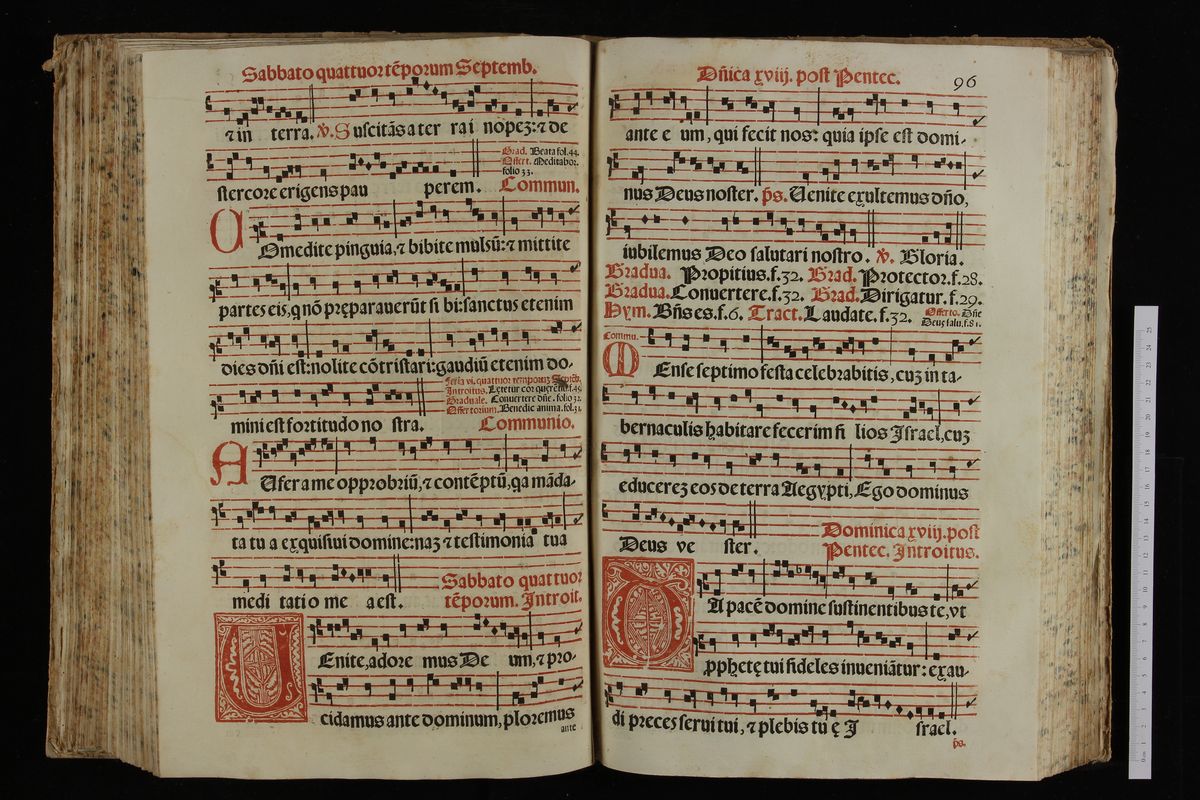 Sabbato quattuor tẽporum Septemb.
⁊ in terra. ℣. S uscitãs a ter ra i nopeʒ: ⁊ de
stercore erigens pau perem.
Grad. Beata fol. 44.
Offert. Meditabor.
folio 33.
Commun.
COmedite pinguia, ⁊ bibite mulsũ: ⁊ mittite
partes eis, q nõ pręparauerũt si bi: sanctus etenim
dies dñi est: nolite cõtristari: gaudiũ etenim do-
mini est fortitudo no stra.
feria vi. quattuor temporuʒ Septẽb.
Introitus. Letetur cor querẽtiũ. f. 49
Graduale. Conuertere dñe. folio 32.
Offertorium. Benedic anima. fol. 31.
Communio.
AUfer a me opprobriũ, ⁊ contẽptũ, qa mãda-
ta tu a exquisiui domine: naʒ ⁊ testimonia tua
medi tatio me a est.
Sabbato quattuor
tẽporum. Introit.
UEnite, adore mus De um, ⁊ pro-
cidamus ante dominum, ploremus
ante
Dñica xviij. post Pentec.
96
ante e um, qui fecit nos: quia ipse est domi-
nus Deus noster. p̃s. Uenite exultemus dño,
iubilemus Deo salutari nostro. ℣. Gloria.
Gradua. Propitius. f. 32. Grad. Protector. f. 28.
Gradua. Conuertere. f. 32. Grad. Dirigatur. f. 29.
Hym. Bñs es. f. 6. Tract. Laudate. f. 32.
Offerto. Dñe
Deus salu. f. 81.
Commu.
MEnse septimo festa celebrabitis, cuʒ in ta-
bernaculis habitare fecerim fi lios Israel, cuʒ
educereʒ eos de terra Aegypti, Ego dominus
Deus ve ster.
Dominica xviij. post
Pentec. Introitus.
DA pacẽ domine sustinentibus te, vt
pphetę tui fideles inueniãtur: exau-
di preces serui tui, ⁊ plebis tu ę I srael.
p̃s.